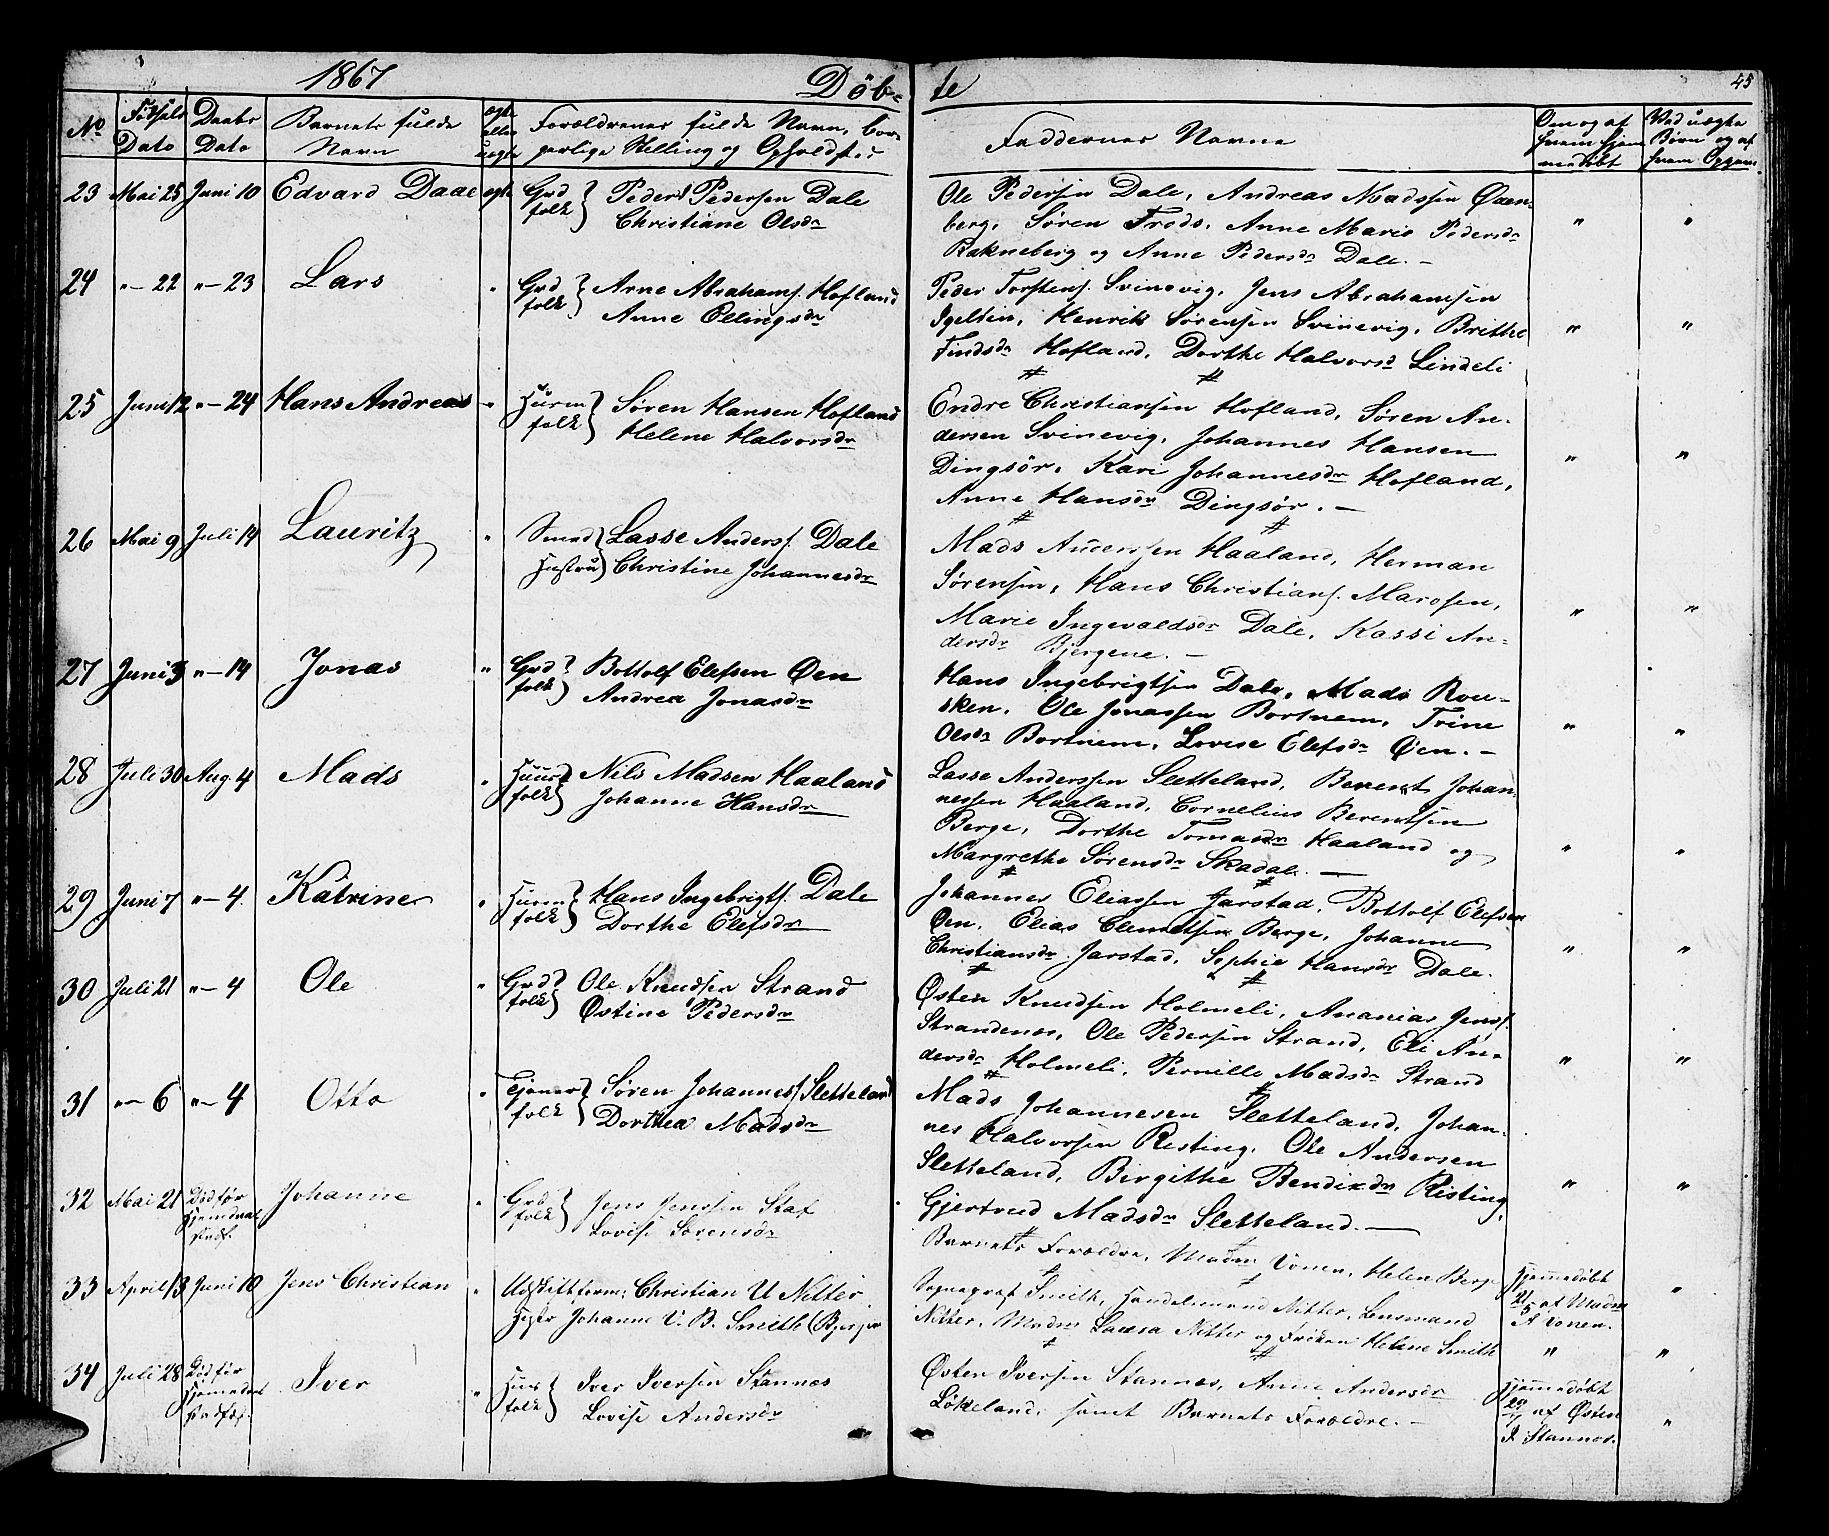 1867 Döb- te 45
No Fødsels Dato Daabs Dato Barnets fulde Navn ægte eller uægte Forældrenes fulde Navn, bor- gerlige Stilling og Opholdst: Faddernes Navne Om og af hvem hjem- medöbt Ved uægte Börn og af hvem Opgav.
23 Mai 25 Juni 10 Edvard Daae ægte Grd folk } Peder Pedersen Dale
Christiane Olsdr
Ole Pedersen Dale, Andreas Madssen Øxen-
berg, Søren Frods, Anne Marie Pedersdr
Rakneberg og Anne Pedersdr Dale. —
24 " — 22 " — 23 Lars " Grd folk } Arne Abrahams. Hofland
Anne Ellingsdr
Peder Torstens. Svinevig, Jens Abrahamsen
Igeltin, Henrik Sørensen Svinevig, Brithe
Findsdr Hofland, Dorthe Halvorsd Lindeli
25 Juni 12 " — 24 Hans Andreas " Huusm folk } Søren Hansen Hofland
Helene Halvorsdr
Endre Christiansen Hofland, Søren An-
dersen Svinevig, Johannes Hansen
Dingsör, Kari Johannesdr Hofland,
Anne Hansdr Dingsør. —
26 Mai 9 Juli 14 Lauritz " Smed Hustru } Lasse Anders. Dale
Christine Johannesdr
Mads Anderssen Haaland, Herman
Sørensen, Hans Christians. Marosen,
Marie Ingevaldsdr Dale, Kassi An-
dersdr Bjergene. —
27 Juni 3 " — 14 Jonas " Grd folk } Bottolf Elefsen Øen
Andrea Jonasdr
Hans Ingebrigtsen Dale, Mads Rou-
sken, Ole Jonassen Bortnem, Trine
Olsdr Bortnem, Lovise Elefsdr Øen. —
28 Juli 30 Aug 4 Mads " Huus folk } Nils Madsen Haaland
Johanne Hansdr
Lasse Anderssen Sletteland, Berent Johan-
nessen Haaland, Cornelius Berentsen
Berge, Dorthe Tomasdr Haaland og
Margrethe Sørensdr Skadal. —
29 Juni 7 " — 4. Katrine " Husm folk } Hans Ingebrigts. Dale
Dorthe Elefsdr
Johannes Eliassen Jarstad, Bottolf Elefsen
Øen, Elias Clemetsen Berge, Johanne
Christiansdr Jarstad, Sophie Hansdr Dale.
30 Juli 21 " — 4 Ole " Grd folk } Ole Knudsen Strand
Østine Pedersdr
Østen Knudsen Holmeli, Ananias Jens.
Strandenæs, Ole Pedersen Strand, Eli An-
dersdr Holmeli, Pernille Madsdr Strand
31 " — 6 " — 4 Otto " Tjener folk } Søren Johannes. Sletteland
Dorthea Madsdr
Mads Johannesen Sletteland, Johan-
nes Halvorsen Risting, Ole Andersen
Sletteland, Birgithe Bendixdr Risting,
Gjertrud Madsdr Sletteland. —
32 Mai 21 Död för Hjemdaab stadf. Johanne " Grd folk } Jens Jenssen Staf
Lovise Sørensdr
Barnets Forældre, Madm Vonen, Helen Berge
Hjemmedöbt 21/5 af Madm A Vonen.
33 April 13 Juni 10 Jens Christian " Udskiftform: Christian U Nitter
Hustr Johanne U. B. Smith (Bjerger
Sogneprest Smith, Handelsmand Nitter, Lensmand
Nitter, Madm Laura Nitter og Fröken Helene Smith
34 Juli 28 Död för Hjemdaab stadfæs. Iver " Hus folk } Iver Iversen Stannæs
Lovise Andersdr
Østen Iversen Stannæs, Anne Andersdr
Løkeland, samt Barnets Forældre. —
Hjemmedöbt 29/7 af Østen I. Stannæs.